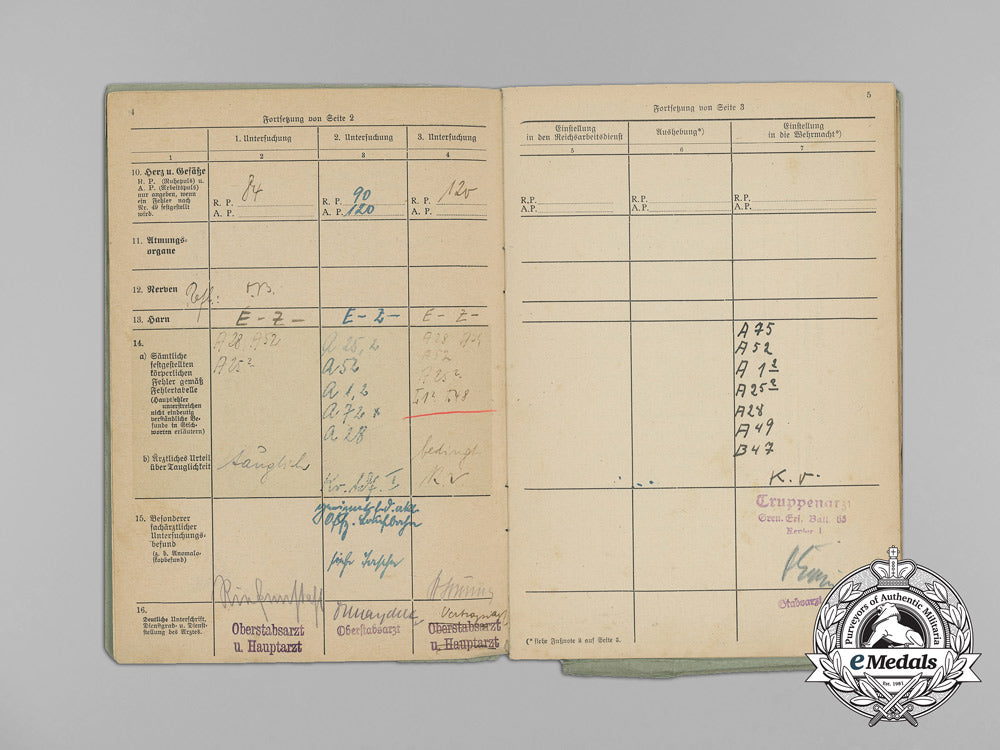 4
Fortsetzung von Seite 2
1. Untersuchung 2. Untersuchung 3. Untersuchung
1 2 3 4
10. Herz u. Gefäße
R. P. (Ruhepuls) u.
A. P. (Arbeitspuls)
nur angeben, wenn
ein Fehler nach
Nr. 49 festgestellt
wird.
84 90 120
R. P. R. P. R. P.
A. P. A. P. 120 A. P.
11. Atmungs-
organe
12. Nerven
13. Harn E - Z - E - Z - E - Z -
14.
a) Sämtliche
festgestellten
körperlichen
Fehler gemäß
Fehlertabelle
(Hauptfehler
unterstreichen
nicht eindeutig
verständliche Be-
funde in Stich-
worten erläutern)
A 28, A 52
A 25²
A 25, 2
A 52
A 1, 2
A 72
A 28
A 28
A 52
A 25²
b) Ärztliches Urteil
über Tauglichkeit
tauglich
bedingt
K. v.
15. Besonderer
fachärztlicher
Untersuchungs-
befund
(z. B. Anomalo-
skopbefund)
siehe
16.
Deutliche Unterschrift,
Dienstgrad- u. Dienst-
stellung des Arztes.
Oberstabsarzt
u. Hauptarzt
Oberstabsarzt
Oberstabsarzt
u. Hauptarzt
5
Fortsetzung von Seite 3
Einstellung
in den Reichsarbeitsdienst
Aushebung*)
Einstellung
in die Wehrmacht*)
5 6 7
R.P. R.P. R.P.
A.P. A.P. A.P.
A 75
A 52
A 1²
A 25²
A 28
A 49
B 47
K. v.
Truppenarzt
Gren. Ers. Batl. 65
Stabsarzt
(* siehe Fußnote 3 auf Seite 3.
Purveyors of Authentic Militaria
eMedals
Est. 1981